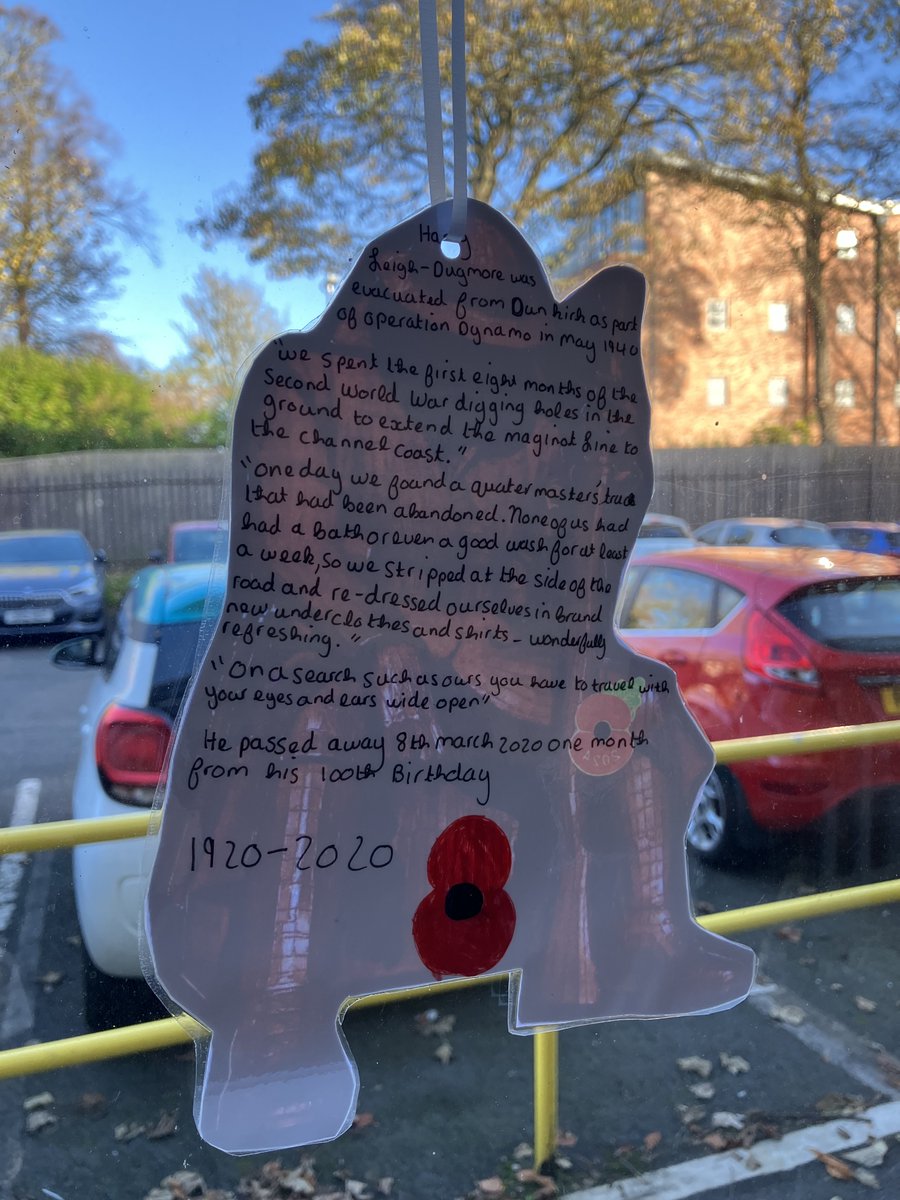 Harry
Leigh-Dugmore was
evacuated from Dunkirk as part
of operation Dynamo in may 1940
"we spent the first eight months of the
Second World War digging holes in the
ground to extend the maginot Line to
the channel coast."
"one day we found a quatermaster's truck
that had been abandoned. None of us had
had a bath or even a good wash for at least
a week, so we stripped at the side of the
road and re-dressed ourselves in brand
new underclothes and shirts - wonderfully
refreshing."
"On a search such as ours you have to travel with
your eyes and ears wide open"
He passed away 8th march 2020 one month
from his 100th Birthday
1920-2020
2024